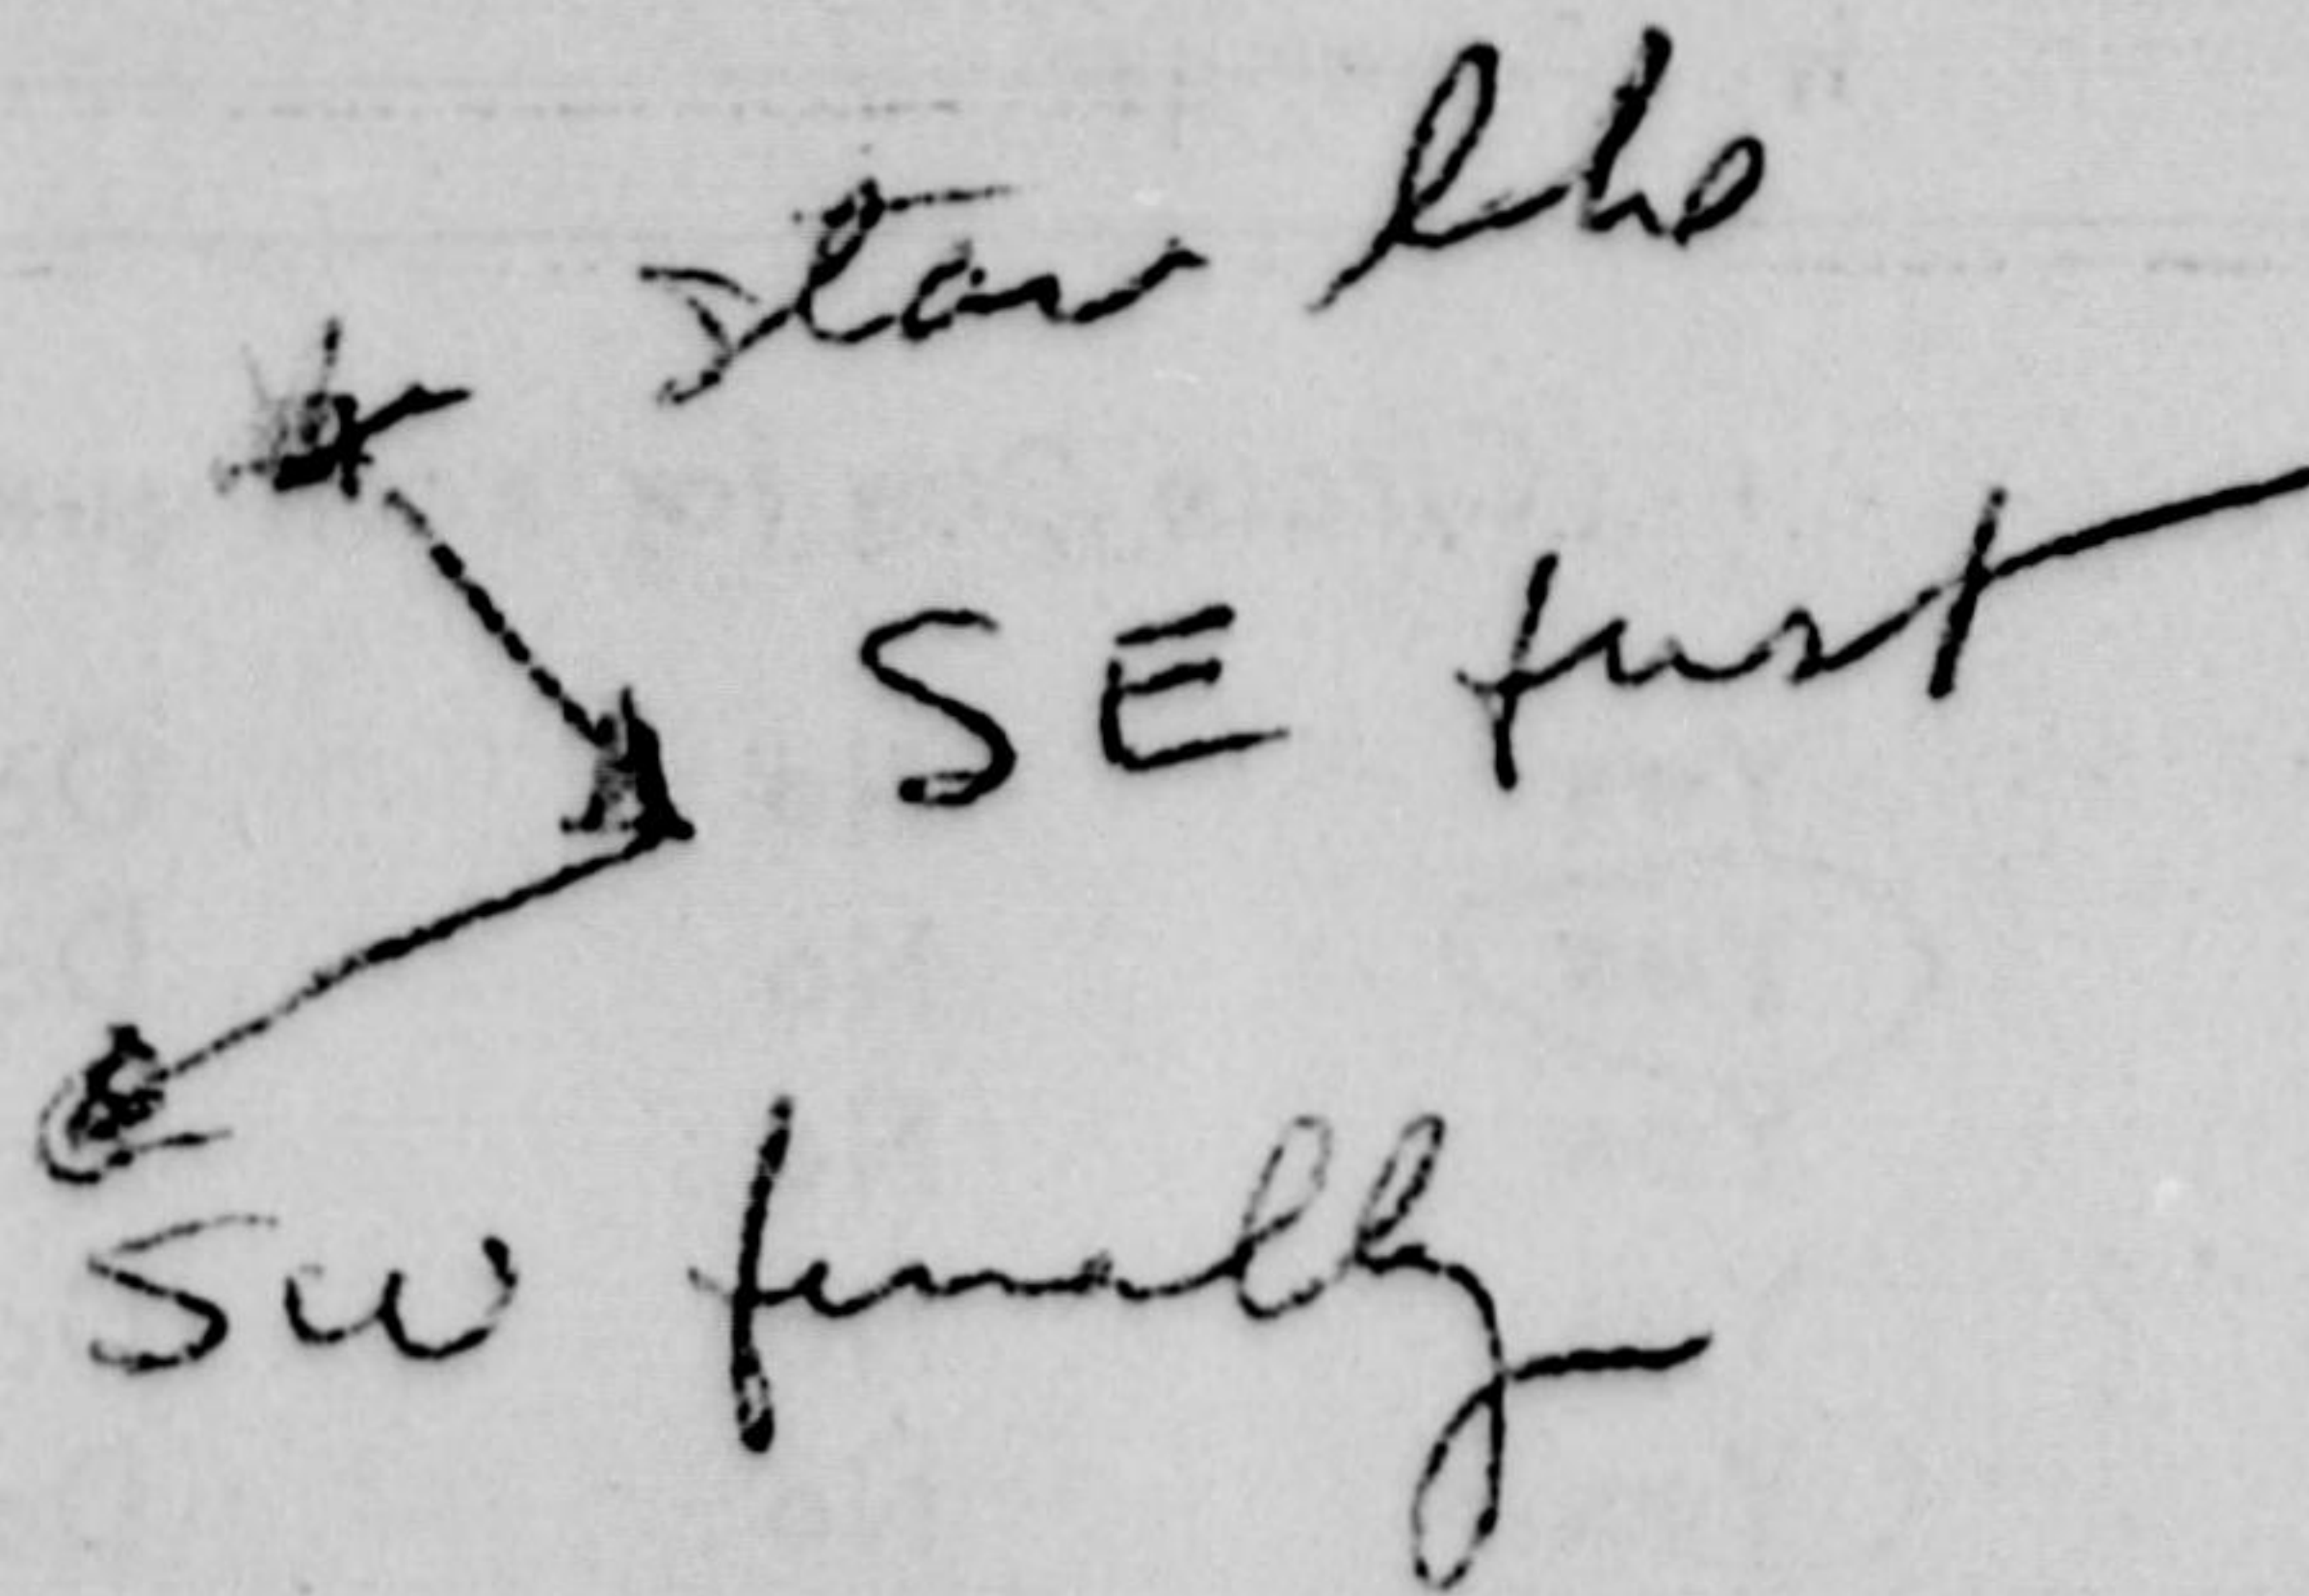 star like
SE first
SW finally